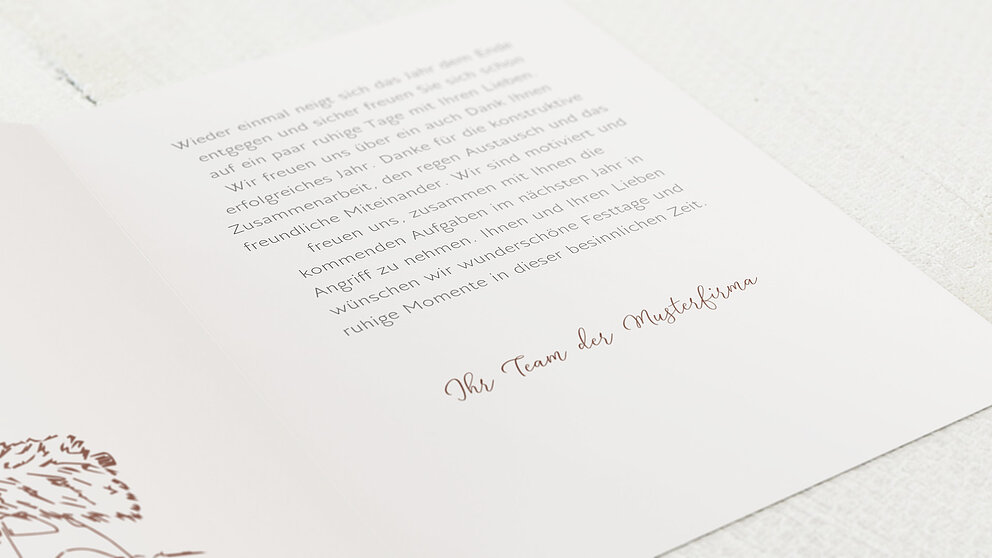 Wieder einmal neigt sich das Jahr dem Ende
entgegen und sicher freuen Sie sich schon
auf ein paar ruhige Tage mit Ihren Lieben.
Wir freuen uns über ein auch Dank Ihnen
erfolgreiches Jahr. Danke für die konstruktive
Zusammenarbeit, den regen Austausch und das
freundliche Miteinander. Wir sind motiviert und
freuen uns, zusammen mit Ihnen die
kommenden Aufgaben im nächsten Jahr in
Angriff zu nehmen. Ihnen und Ihren Lieben
wünschen wir wunderschöne Festtage und
ruhige Momente in dieser besinnlichen Zeit.
Ihr Team der Musterfirma